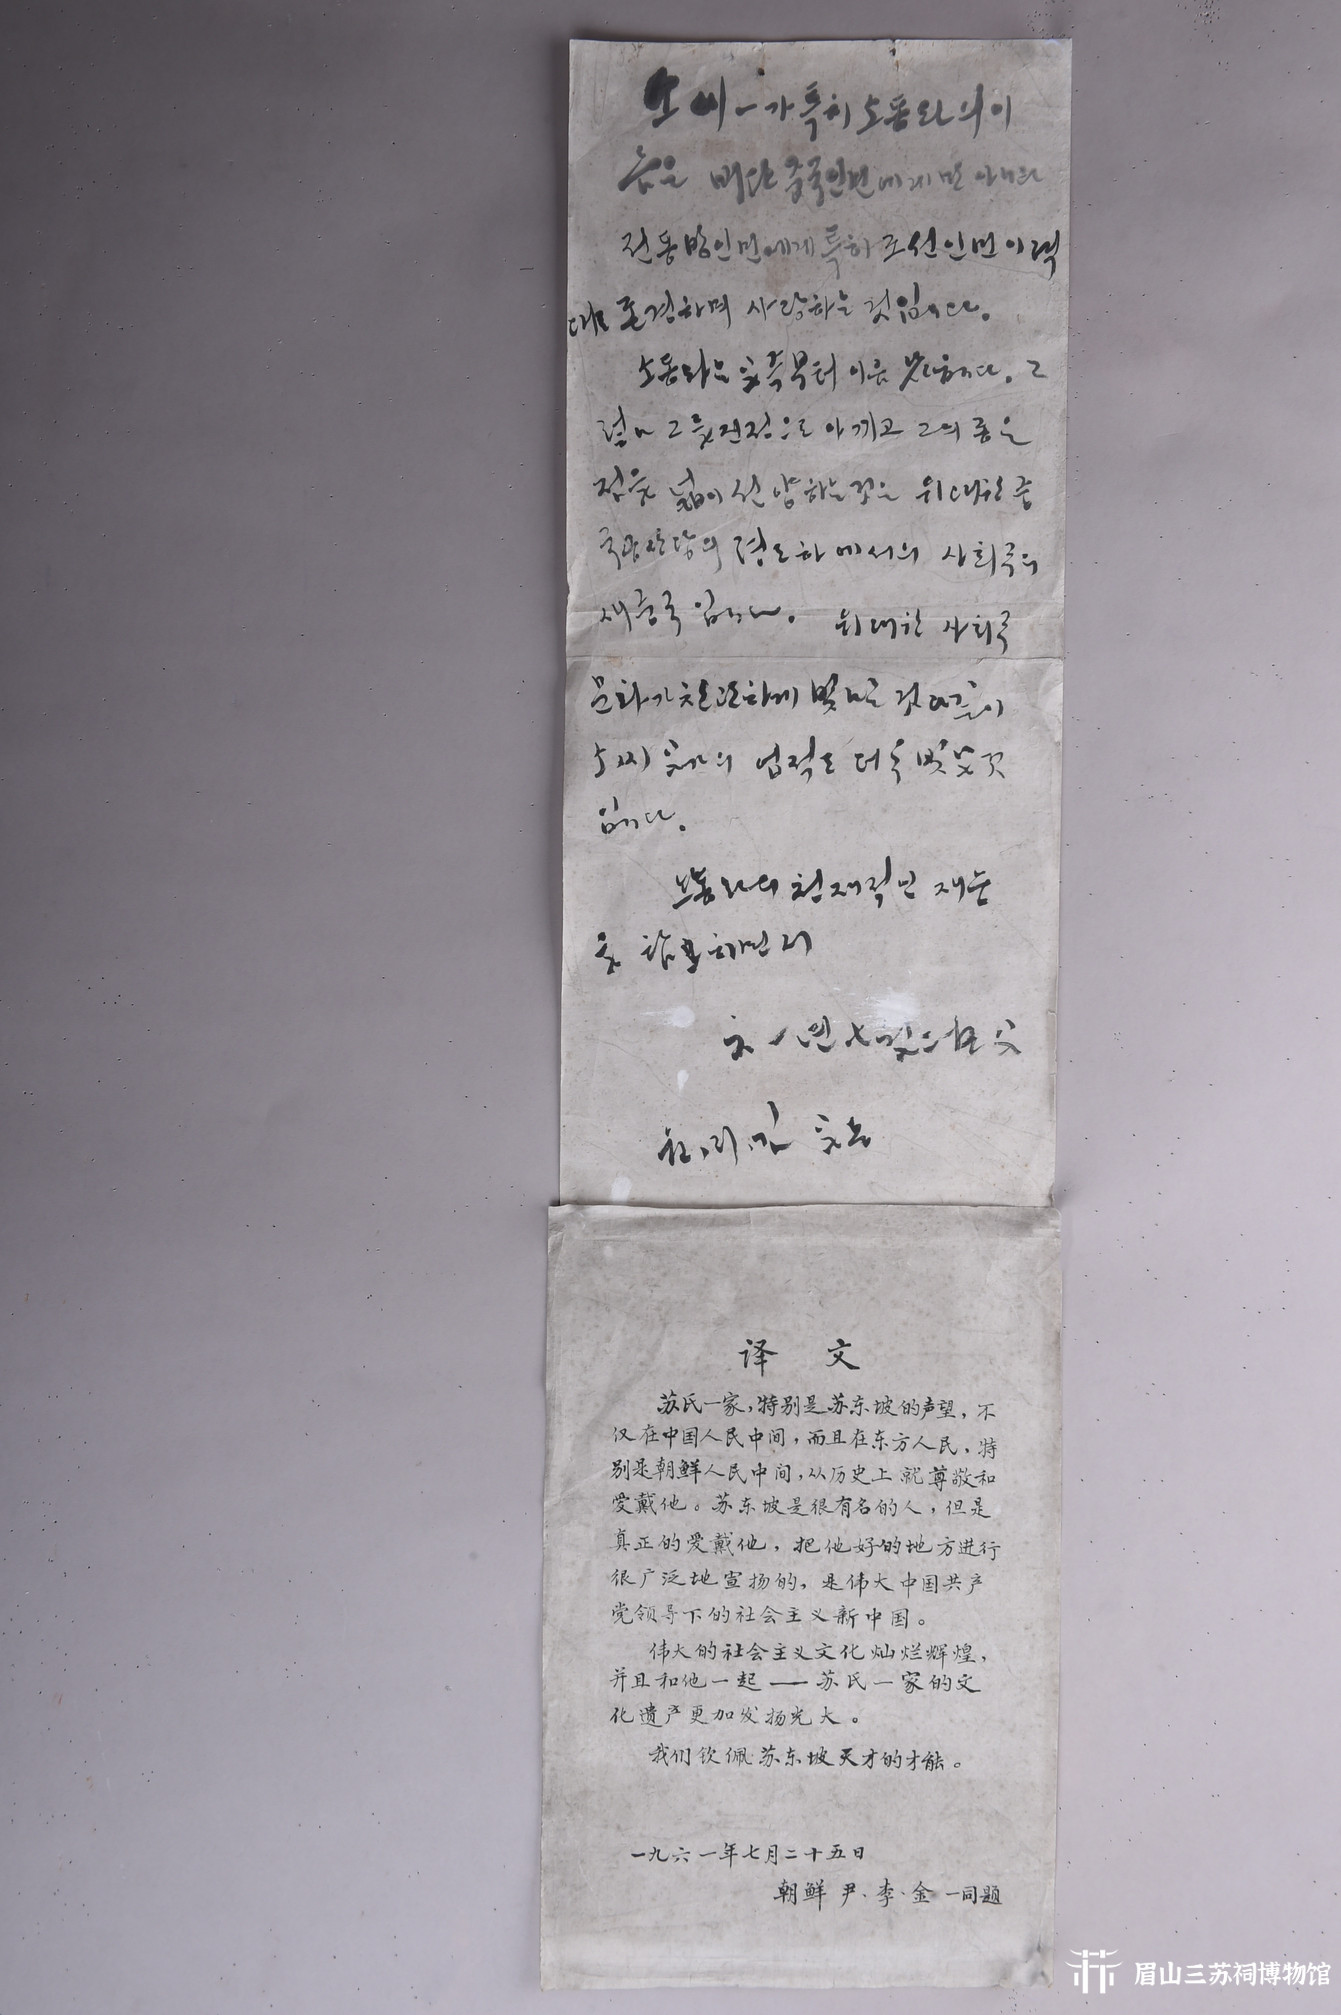 소씨一가 특히 소동파의 이
름은 비단 중국인민에게만 아니라
전동방인민에게 특히 조선인민이 력
대로 존경하며 사랑하는 것입니다.
소동파는
그의 좋은
점을 넓이 선양하는것은 위대한 중
국공산당의 령도하에서의 사회주의
새중국입니다. 위대한 사회주의
문화가 찬란하게 빛나는 것
소씨 一家의 업적도 더욱 빛날것
입니다.
소동파의 천재적인 재능
을
译 文
苏氏一家，特别是苏东坡的声望，不
仅在中国人民中间，而且在东方人民，特
别是朝鲜人民中间，从历史上就尊敬和
爱戴他。苏东坡是很有名的人，但是
真正的爱戴他，把他好的地方进行
很广泛地宣扬的，是伟大中国共产
党领导下的社会主义新中国。
伟大的社会主义文化灿烂辉煌，
并且和他一起——苏氏一家的文
化遗产更加发扬光大。
我们钦佩苏东坡天才的才能。
一九六一年七月二十五日
朝鲜 尹·李·金 一同题
眉山三苏祠博物馆